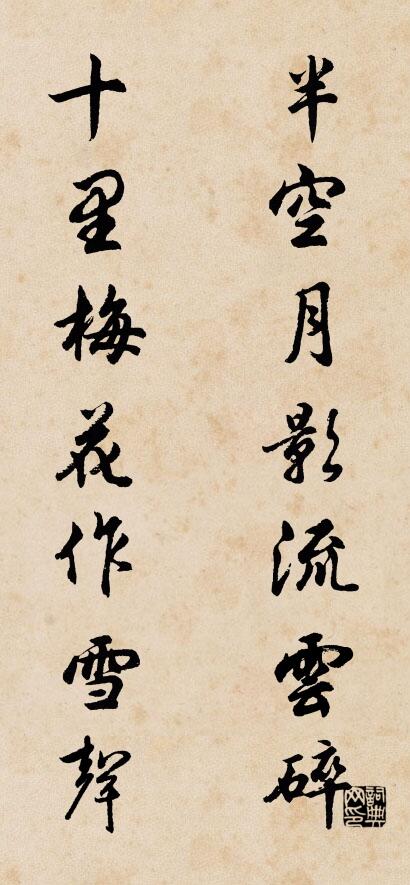 半空月影流雲碎
十里梅花作雪聲
詞典網印